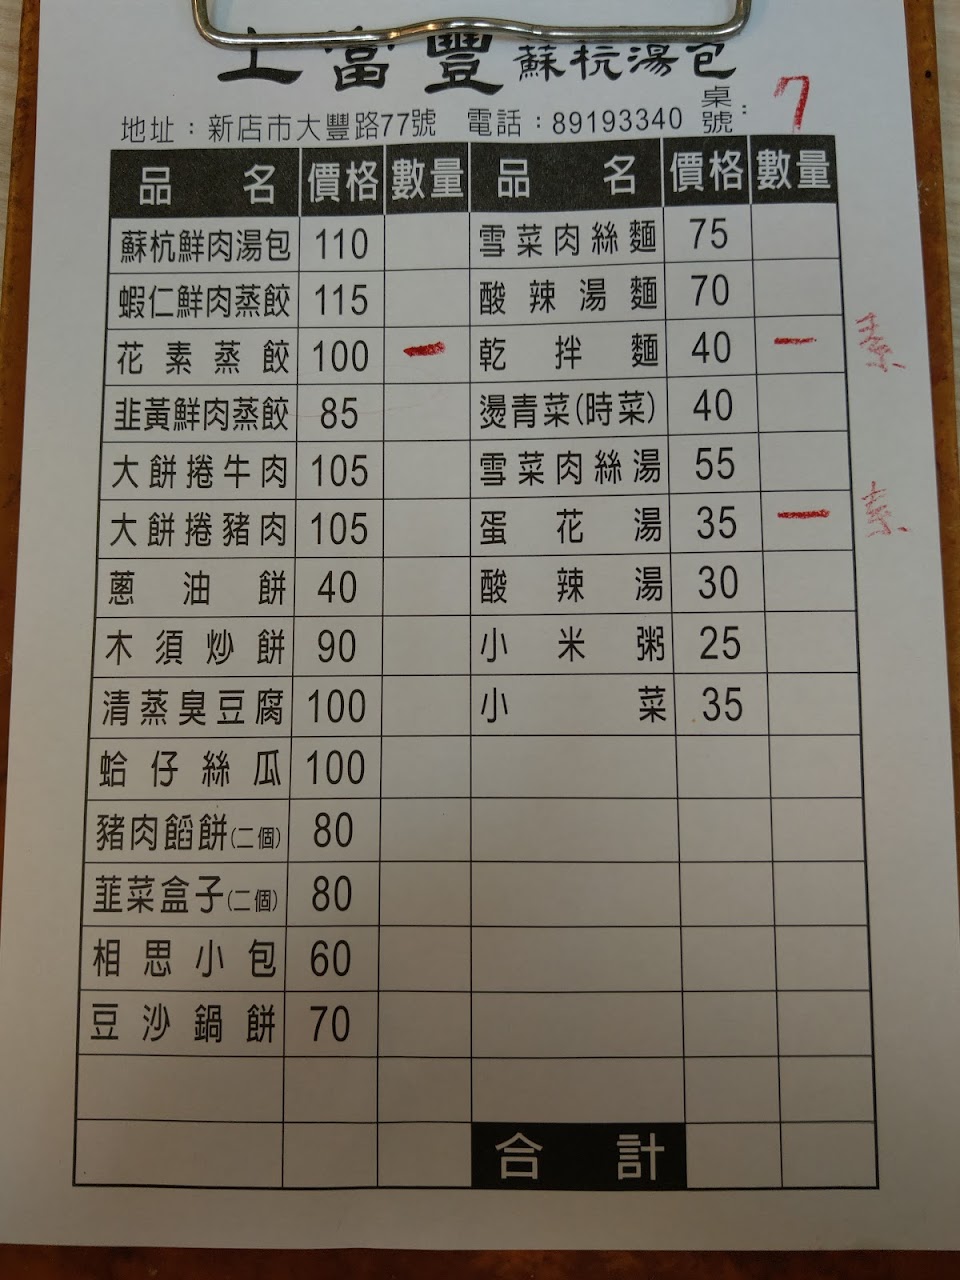 上富豐 蘇杭湯包
地址：新店市大豐路77號 電話：89193340 桌號：7
品名 價格 數量 品名 價格 數量
蘇杭鮮肉湯包 110 雪菜肉絲麵 75
蝦仁鮮肉蒸餃 115 酸辣湯麵 70
花素蒸餃 100 一 乾拌麵 40 一 素
韭黃鮮肉蒸餃 85 燙青菜(時菜) 40
大餅捲牛肉 105 雪菜肉絲湯 55
大餅捲豬肉 105 蛋花湯 35 一 素
蔥油餅 40 酸辣湯 30
木須炒餅 90 小米粥 25
清蒸臭豆腐 100 小菜 35
蛤仔絲瓜 100
豬肉餡餅(二個) 80
韭菜盒子(二個) 80
相思小包 60
豆沙鍋餅 70
合計